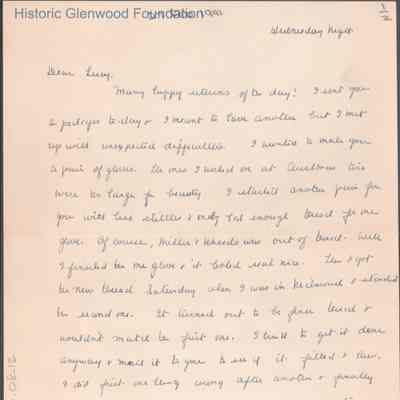 Historic Glenwood Foundation
Wednesday Night
Dear Lucy,
Many happy returns of the day! I sent you
2 packages to-day & I meant to have another but I met
up with unexpected difficulties. I wanted to make you
a pair of gloves. The ones I worked on at Christmas time
were too large for beauty. I started another pair for
you with less stitches & only had enough thread for one
glove. Of course, Miller & Rhoads was out of thread. Well
I finished the one glove & it looked real nice. Then I got
the new thread Saturday when I was in Richmond & started
the second one. It turned out to be finer thread &
wouldn't match the first one. I tried to get it done
anyway & mail it to you to see if it fitted &
I did first one thing wrong after another & finally